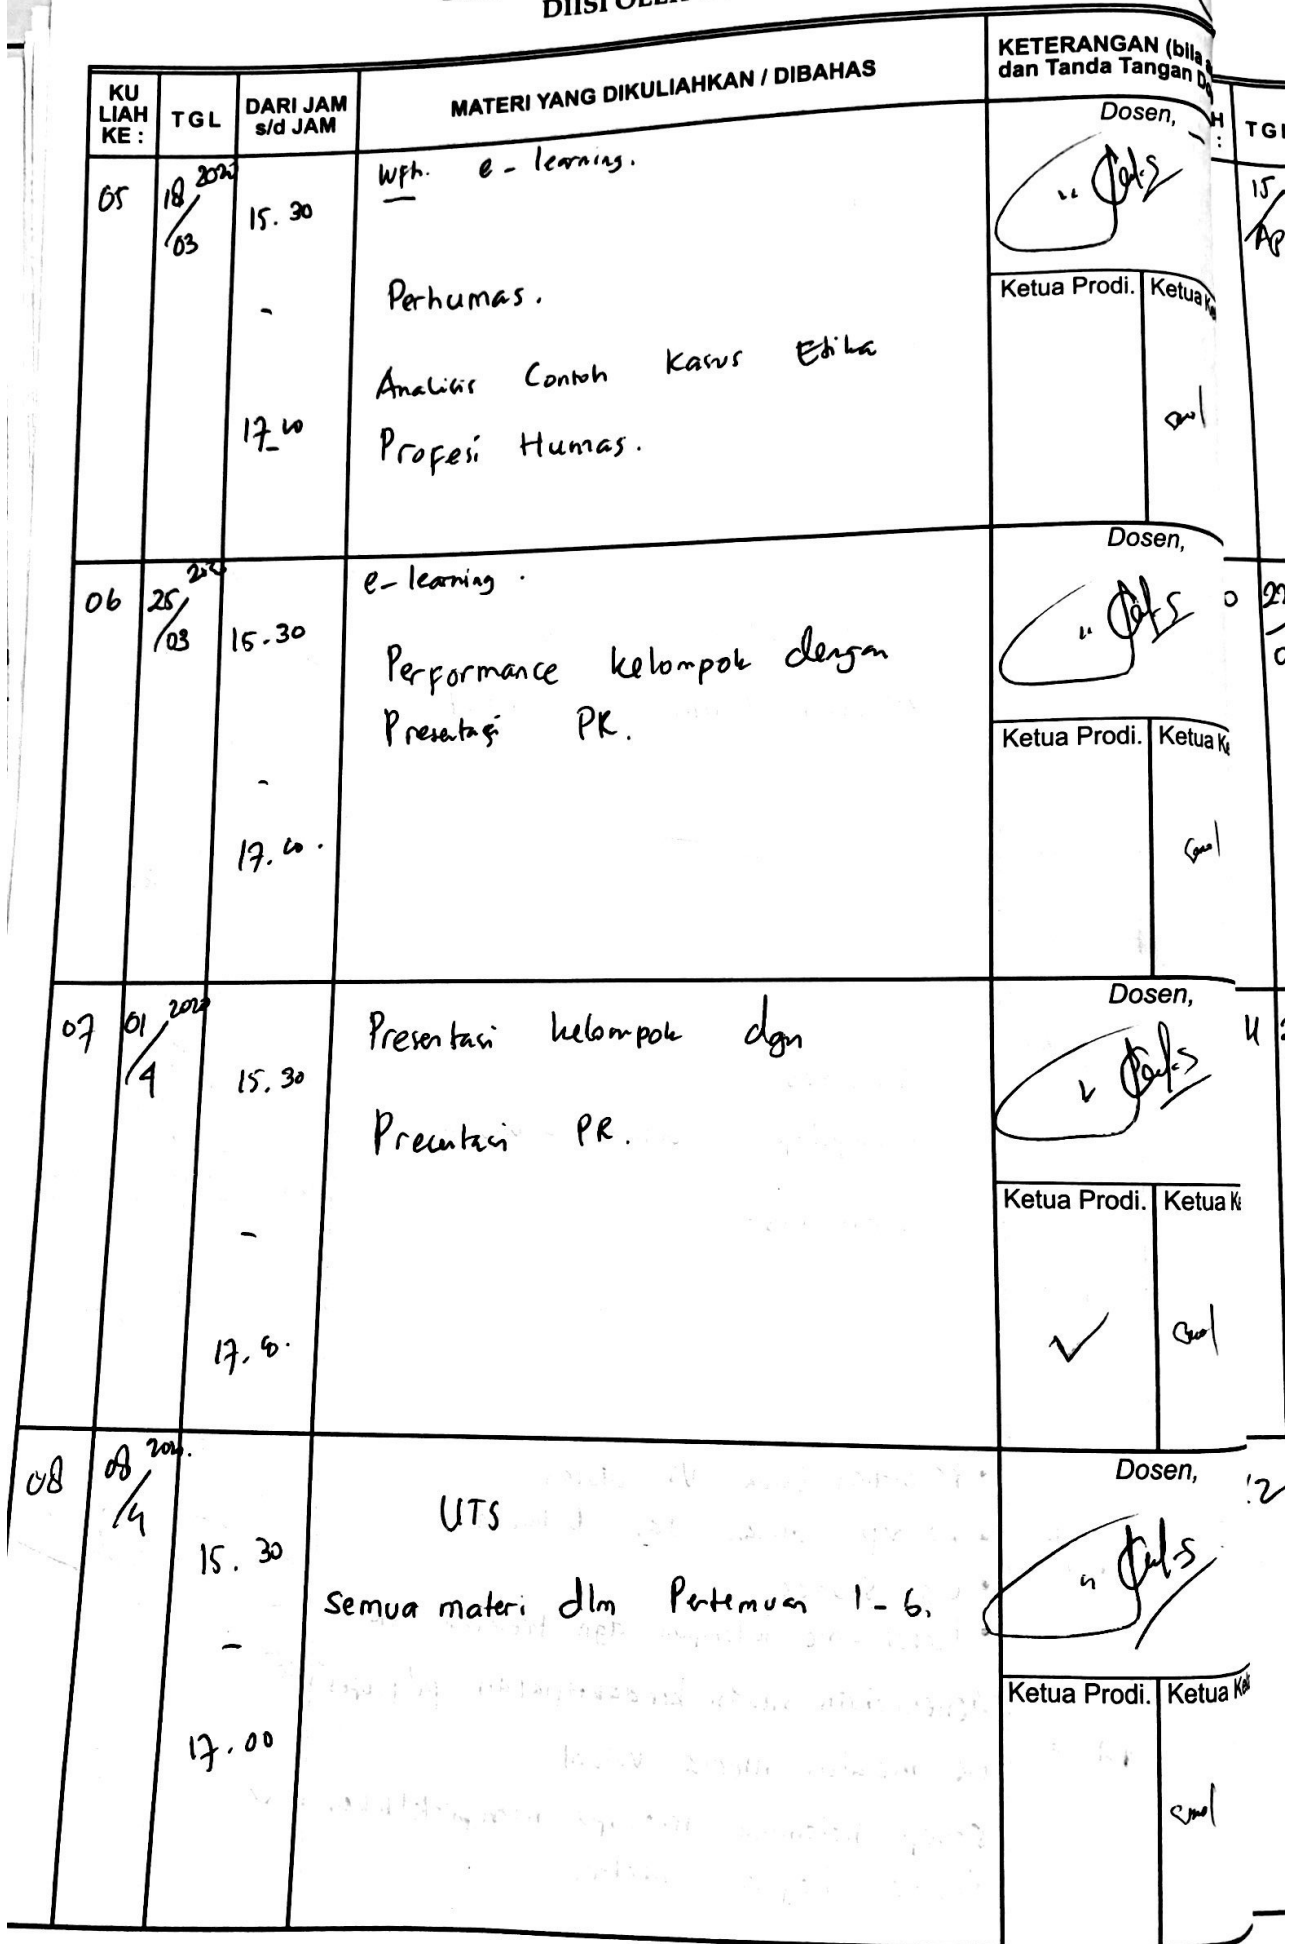 DIISI OLEH
KU LIAH KE :
TGL
DARI JAM s/d JAM
MATERI YANG DIKULIAHKAN / DIBAHAS
KETERANGAN (bila
dan Tanda Tangan
TGL
05
18/03 2020
15.30
-
Wfh. e-learning.
Perhumas.
Analisis Contoh Kasus Etika
Profesi Humas.
Dosen,
Ketua Prodi.
Ketua
15/
06
25/03
15.30
-
e-learning.
Performance kelompok dengan
Presentasi PR.
Dosen,
Ketua Prodi.
Ketua
07
01/4 2020
15.30
-
Presentasi kelompok dgn
Presentasi PR.
Dosen,
Ketua Prodi.
Ketua
08
08/4
15.30
-
17.00
UTS
semua materi dlm Pertemuan 1-6.
Dosen,
Ketua Prodi.
Ketua